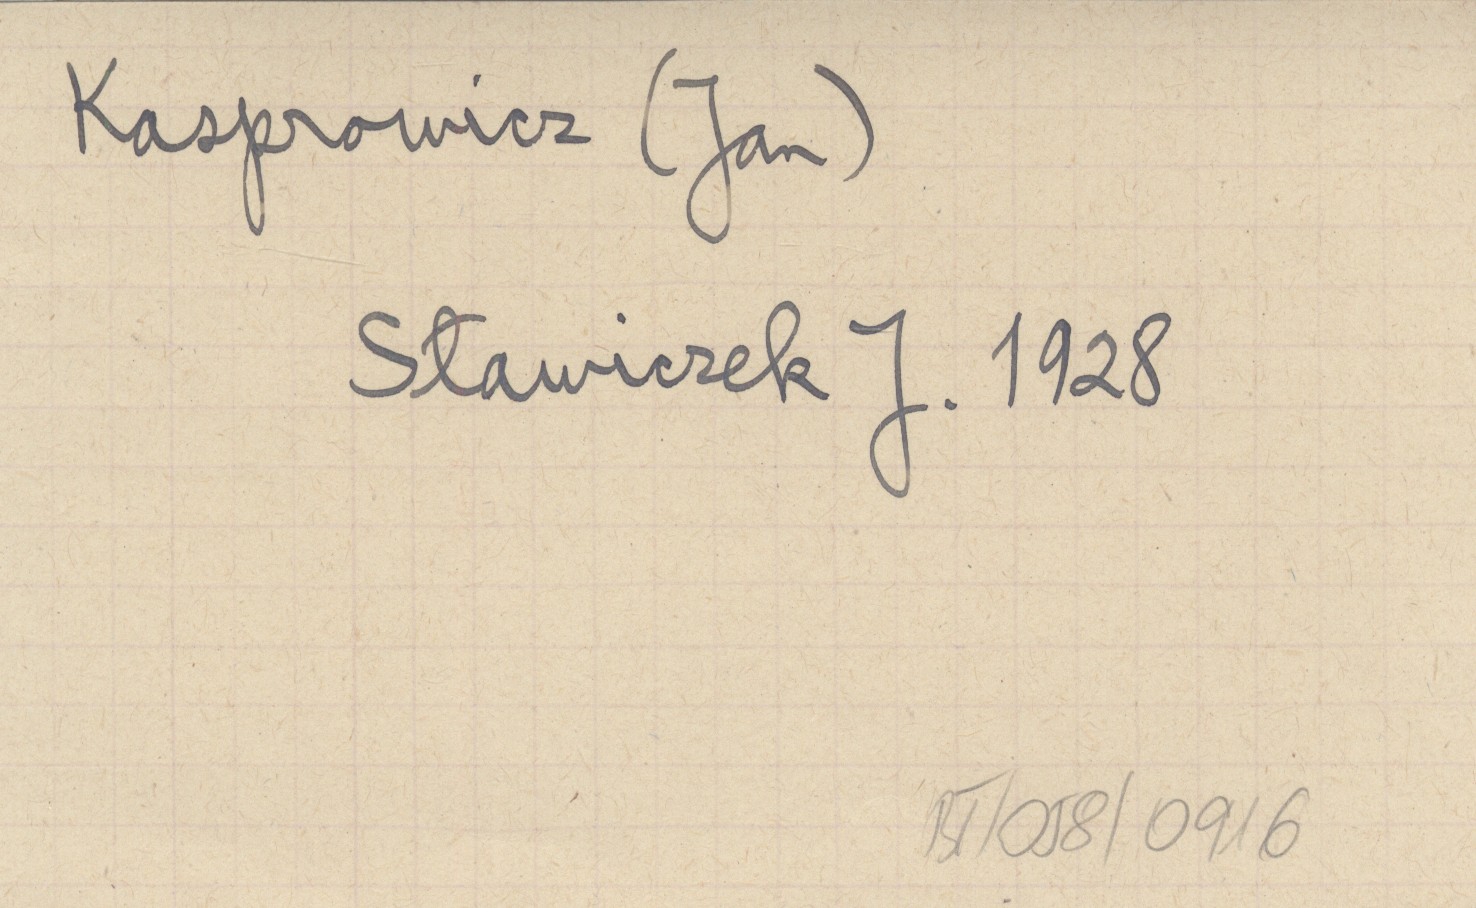 Kasprowicz (Jan)
Sławiczek J. 1928
/058/0916